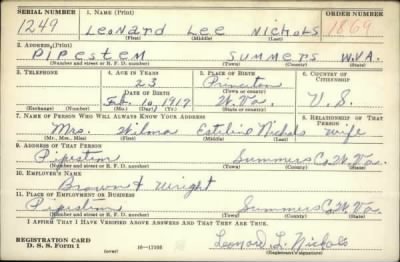 SERIAL NUMBER 1. NAME (Print) ORDER NUMBER
1249 Leonard Lee Nichols 1869
(First) (Middle) (Last)
2. ADDRESS (Print)
Pipestem Summers W.VA.
(Number and street or R. F. D. number) (Town) (County) (State)
3. TELEPHONE 4. AGE IN YEARS 5. PLACE OF BIRTH 6. COUNTRY OF CITIZENSHIP
23 Princeton
DATE OF BIRTH (Town or county)
Feb. 10, 1917 W. Va. U. S.
(Exchange) (Number) (Mo.) (Day) (Yr.) (State or country)
7. NAME OF PERSON WHO WILL ALWAYS KNOW YOUR ADDRESS 8. RELATIONSHIP OF THAT PERSON
Mrs. Wilma Nichols wife
(Mr., Mrs., Miss) (First) (Middle) (Last)
9. ADDRESS OF THAT PERSON
Pipestem Summers Co. W. Va.
(Number and street or R. F. D. number) (Town) (County) (State)
10. EMPLOYER'S NAME
Brown & Wright
11. PLACE OF EMPLOYMENT OR BUSINESS
Pipestem Summers Co. W. Va.
(Number and street or R. F. D. number) (Town) (County) (State)
I AFFIRM THAT I HAVE VERIFIED ABOVE ANSWERS AND THAT THEY ARE TRUE.
REGISTRATION CARD
D. S. S. Form 1 (over) 16—17105 Leonard L. Nichols
(Registrant's signature)